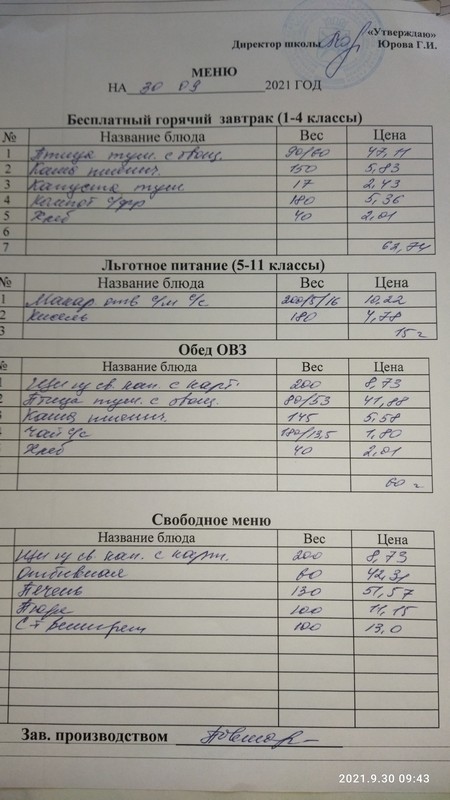 «Утверждаю»
Директор школы Юрова Г.И.
МЕНЮ
НА 30 09 2021 ГОД
Бесплатный горячий завтрак (1-4 классы)
№ Название блюда Вес Цена
1 Птица туш. с овощ. 90/60 47,11
2 Каша пшенич. 150 5,83
3 Капуста туш 17 2,43
4 Компот с/фр 180 5,36
5 Хлеб 40 2,01
6
7 62,74
Льготное питание (5-11 классы)
№ Название блюда Вес Цена
1 Макар отв с/м с/с 200/5/16 10,22
2 Кисель 180 4,78
3 15
Обед ОВЗ
№ Название блюда Вес Цена
Щи из св кап. с карт. 200 8,73
2 Птица туш. с овощ. 80/53 41,88
Каша пшенич. 145 5,58
Чай с/с 180/13,5 1,80
Хлеб 40 2,01
60
Свободное меню
Название блюда Вес Цена
Щи из св. кап. с карт. 200 8,73
Отбивная 60 42,31
Печень 130 51,57
Пюре 100 11,15
100 13,0
Зав. производством
2021.9.30 09:43